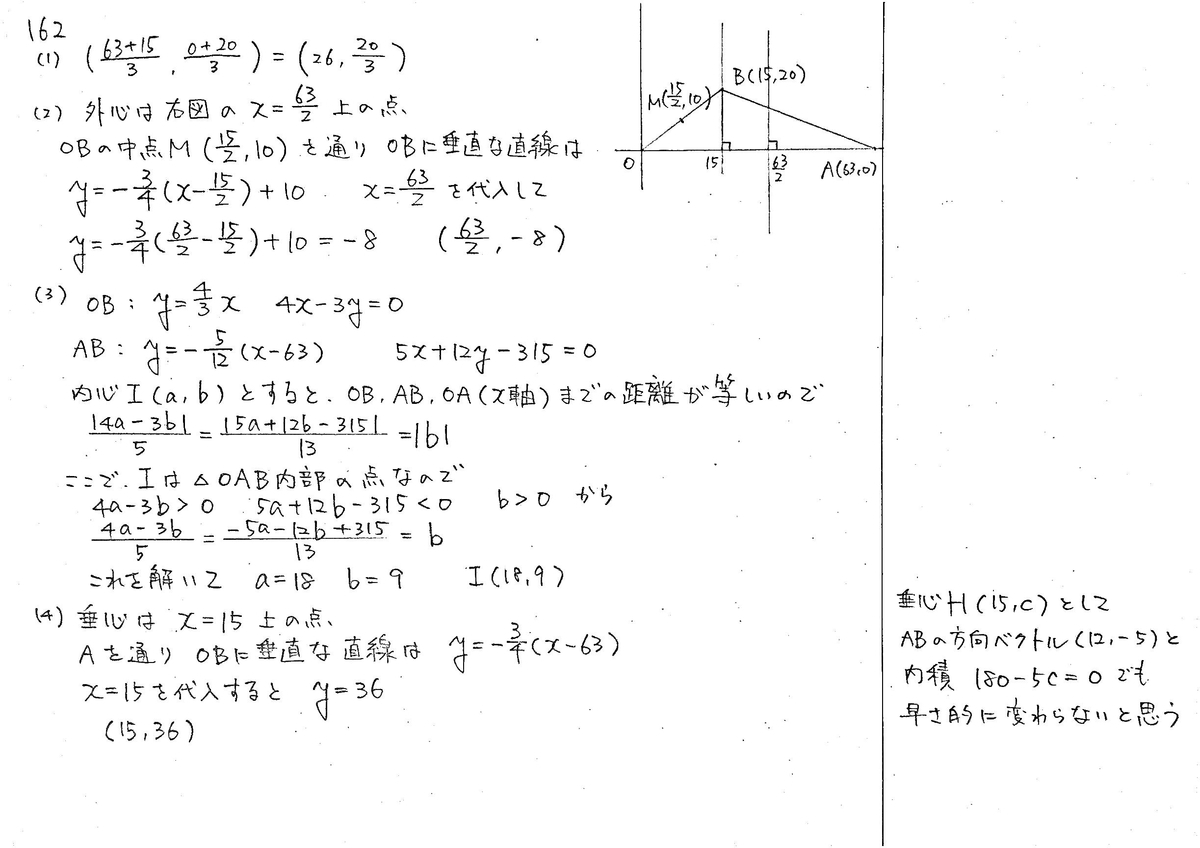 162
(1) ( (63+15)/3 , (0+20)/3 ) = (26, 20/3)
(2) 外心は右図の x = 63/2 上の点、
OBの中点M (15/2, 10) を通り OBに垂直な直線は
y = -3/4 (x - 15/2) + 10 . x = 63/2 を代入して
y = -3/4 (63/2 - 15/2) + 10 = -8 (63/2, -8)
(3) OB : y = 4/3 x 4x - 3y = 0
AB : y = -5/12 (x - 63) 5x + 12y - 315 = 0
内心 I (a, b) とすると、OB, AB, OA (x軸) までの距離が等しいので
|4a - 3b|/5 = |5a + 12b - 315|/13 = |b|
ここで、I は △OAB内部の点なので
4a - 3b > 0 5a + 12b - 315 < 0 b > 0 から
(4a - 3b)/5 = (-5a - 12b + 315)/13 = b
これを解いて a = 18 b = 9 I (18, 9)
(4) 垂心は x = 15 上の点、
Aを通り OBに垂直な直線は y = -3/4 (x - 63)
x = 15 を代入すると y = 36
(15, 36)
B(15, 20)
M(15/2, 10)
O 15 63/2 A(63, 0)
垂心 H (15, c) として
ABの方向ベクトル (12, -5) と
内積 180 - 5c = 0 でも
早さ的に変わらないと思う